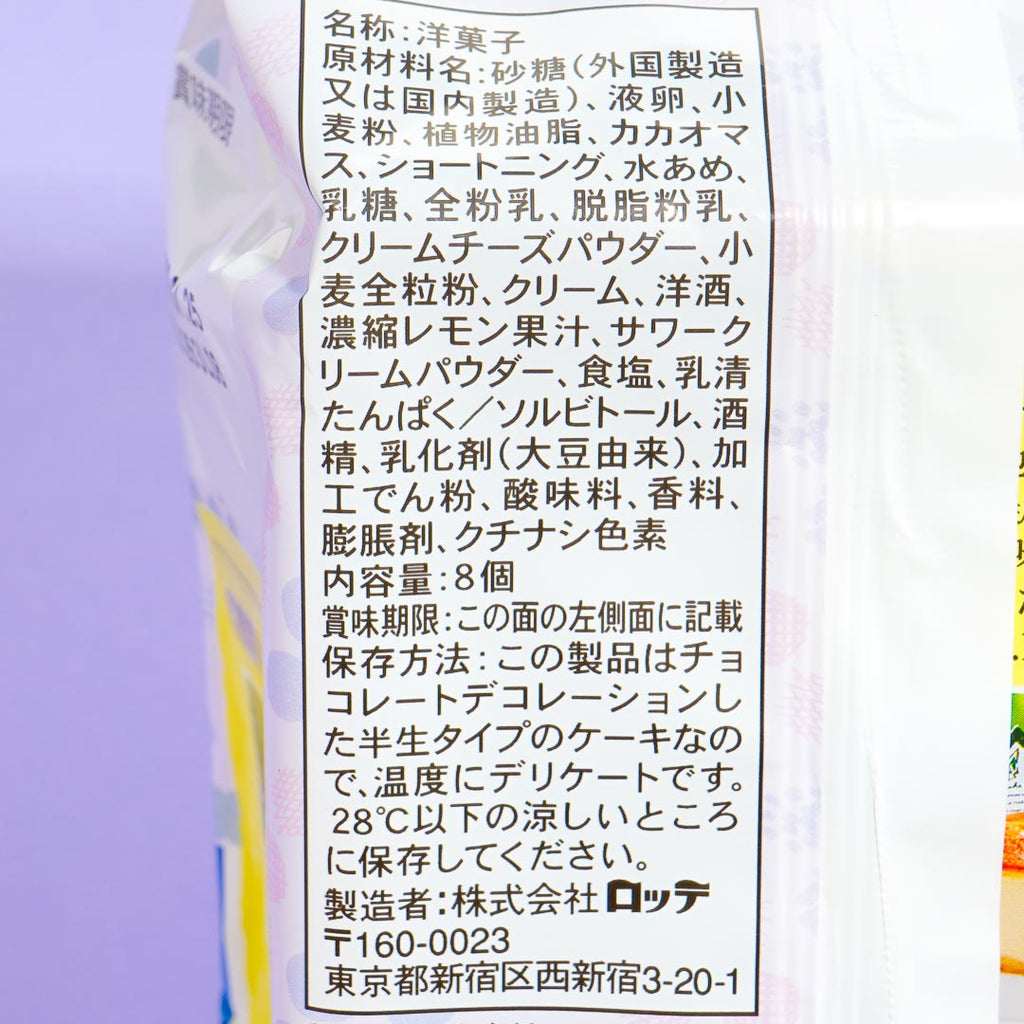 名称：洋菓子
原材料名：砂糖（外国製造
又は国内製造）、液卵、小
麦粉、植物油脂、カカオマ
ス、ショートニング、水あめ、
乳糖、全粉乳、脱脂粉乳、
クリームチーズパウダー、小
麦全粒粉、クリーム、洋酒、
濃縮レモン果汁、サワーク
リームパウダー、食塩、乳清
たんぱく／ソルビトール、酒
精、乳化剤（大豆由来）、加
工でん粉、酸味料、香料、
膨脹剤、クチナシ色素
内容量：8個
賞味期限：この面の左側面に記載
保存方法：この製品はチョ
コレートデコレーションし
た半生タイプのケーキなの
で、温度にデリケートです。
28℃以下の涼しいところ
に保存してください。
製造者：株式会社ロッテ
〒160-0023
東京都新宿区西新宿3-20-1
賞味期限